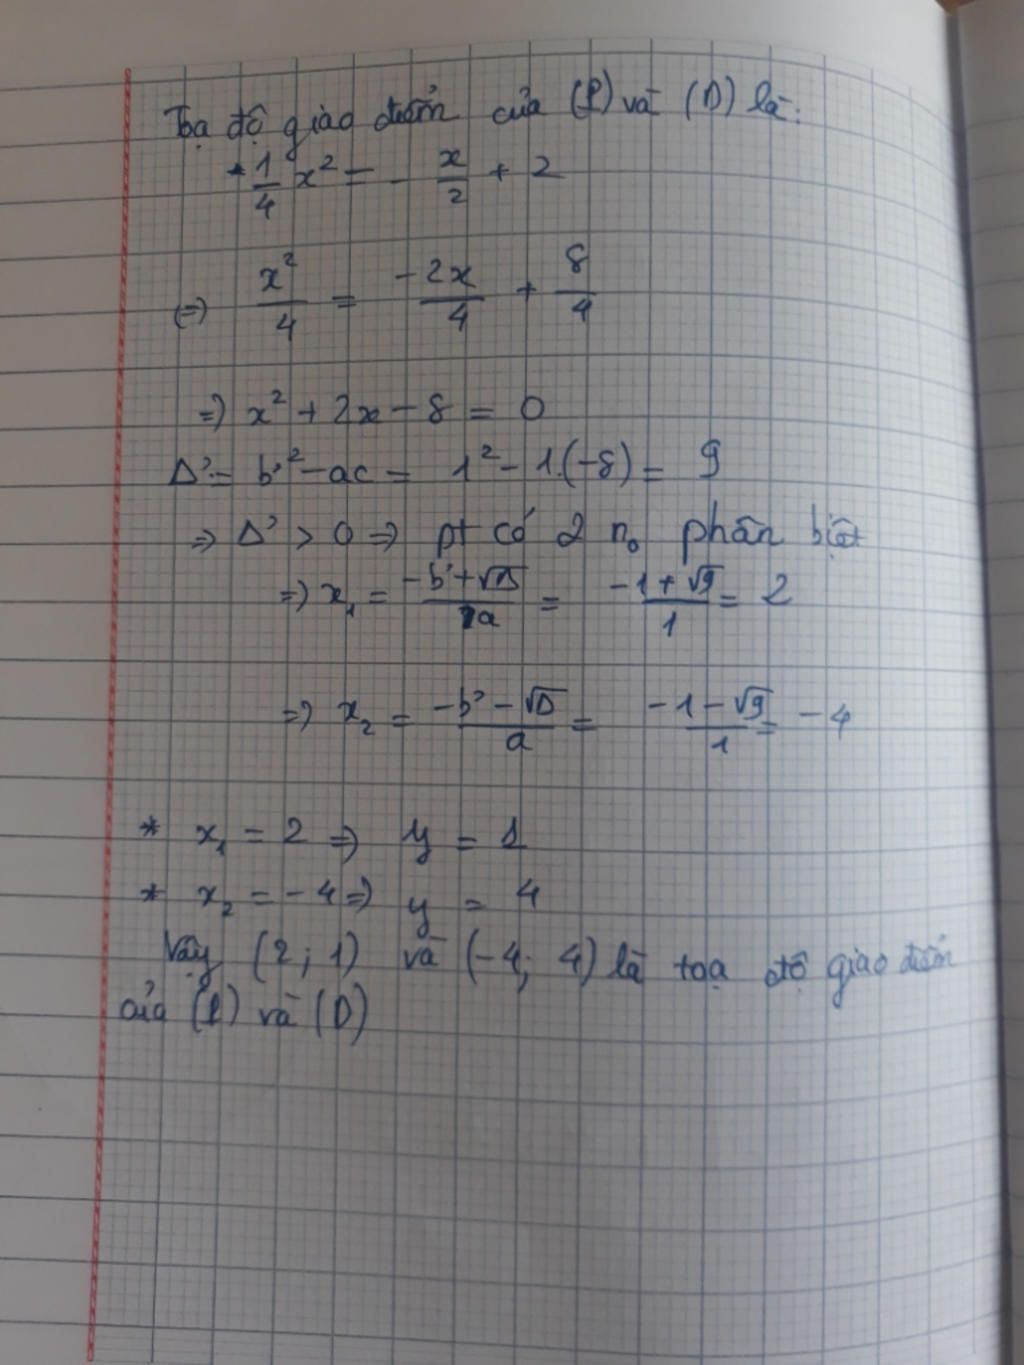 Toạ độ giao điểm của (P) và (D) là:
* 1/4 x² = - x/2 + 2
(=) x²/4 = -2x/4 + 8/4
=) x² + 2x - 8 = 0
Δ' = b'² - ac = 1² - 1.(-8) = 9
=> Δ' > 0 => pt có 2 n₀ phân biệt
=) x₁ = (-b' + √Δ)/a = (-1 + √9)/1 = 2
=) x₂ = (-b' - √Δ)/a = (-1 - √9)/1 = -4
* x₁ = 2 => y = 1
* x₂ = -4 => y = 4
Vậy (2; 1) và (-4; 4) là toạ độ giao điểm
của (P) và (D)